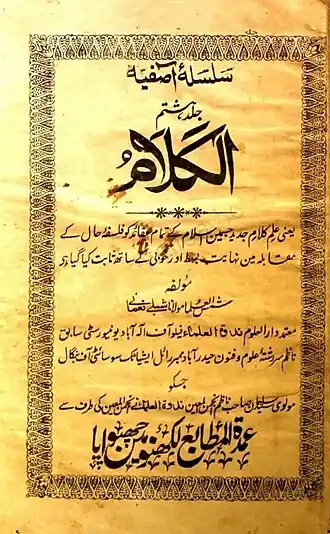 سلسلۂ آصفیہ
جلد ہشتم
الکلام
یعنی علم کلام جدید جسمین اسلام کے تمام عقائد کو فلسفۂ حال کے
مقابلہ مین نہایت اور خوبی کے ساتھ ثابت کیا گیا ہے
مؤلفہ
شمس العلما مولانا شبلی نعمانی
معتمد دارالعلوم ندوۃ العلماء فیلو آف الہ آباد یونیورسٹی سابق
ناظم سررشتۂ علوم و فنون حیدرآباد و ممبر رائل ایشیاٹک سوسائٹی آف بنگال
جسکو
مولوی صاحب ناظم ندوۃ العلما نے کی طرف سے
عمدۃ المطابع لکھنؤ مین چھپوایا